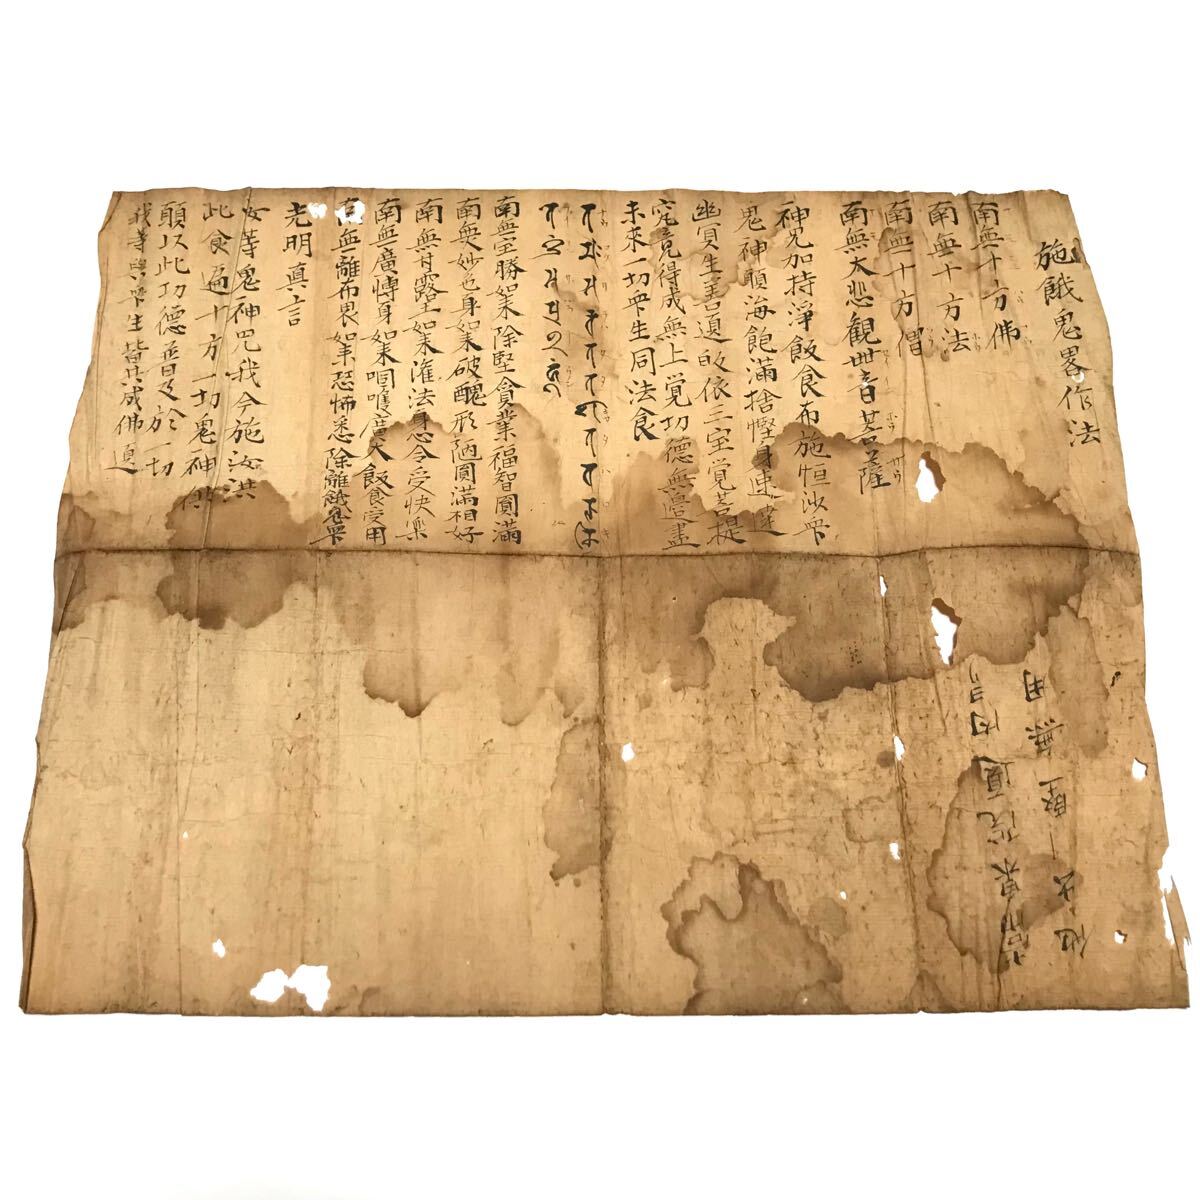 施餓鬼畧作法
南無十方佛
南無十方法
南無十方僧
南無大悲觀世音菩薩
神咒加持淨飯食布施恒沙衆
鬼神願海飽滿捨慳身速違
幽冥生善道皈依三宝覚菩提
究竟得成無上覚功德無邉盡
未來一切衆生同法食
南無宝勝如来除堅貪業福智圓滿
南無妙色身如来破醜形陋圓滿相好
南無甘露王如来潅法身心令受快樂
南無廣博身如来咽喉廣大飯食受用
南無離布畏如来恐怖悉除離餓鬼衆
光明真言
汝等鬼神咒我今施汝供
此食遍十方一切鬼神供
願以此功德並曁及於一切
我等與衆生皆共成佛道
他出一堅無用